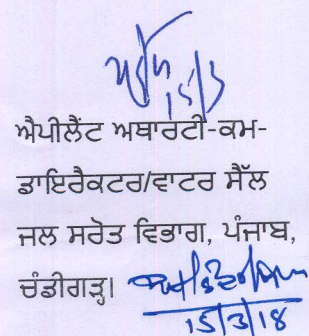 15/3
ਐਪੀਲੈਂਟ ਅਥਾਰਟੀ-ਕਮ-
ਡਾਇਰੈਕਟਰ/ਵਾਟਰ ਸੈੱਲ
ਜਲ ਸਰੋਤ ਵਿਭਾਗ, ਪੰਜਾਬ,
ਚੰਡੀਗੜ੍ਹ।
15/3/18